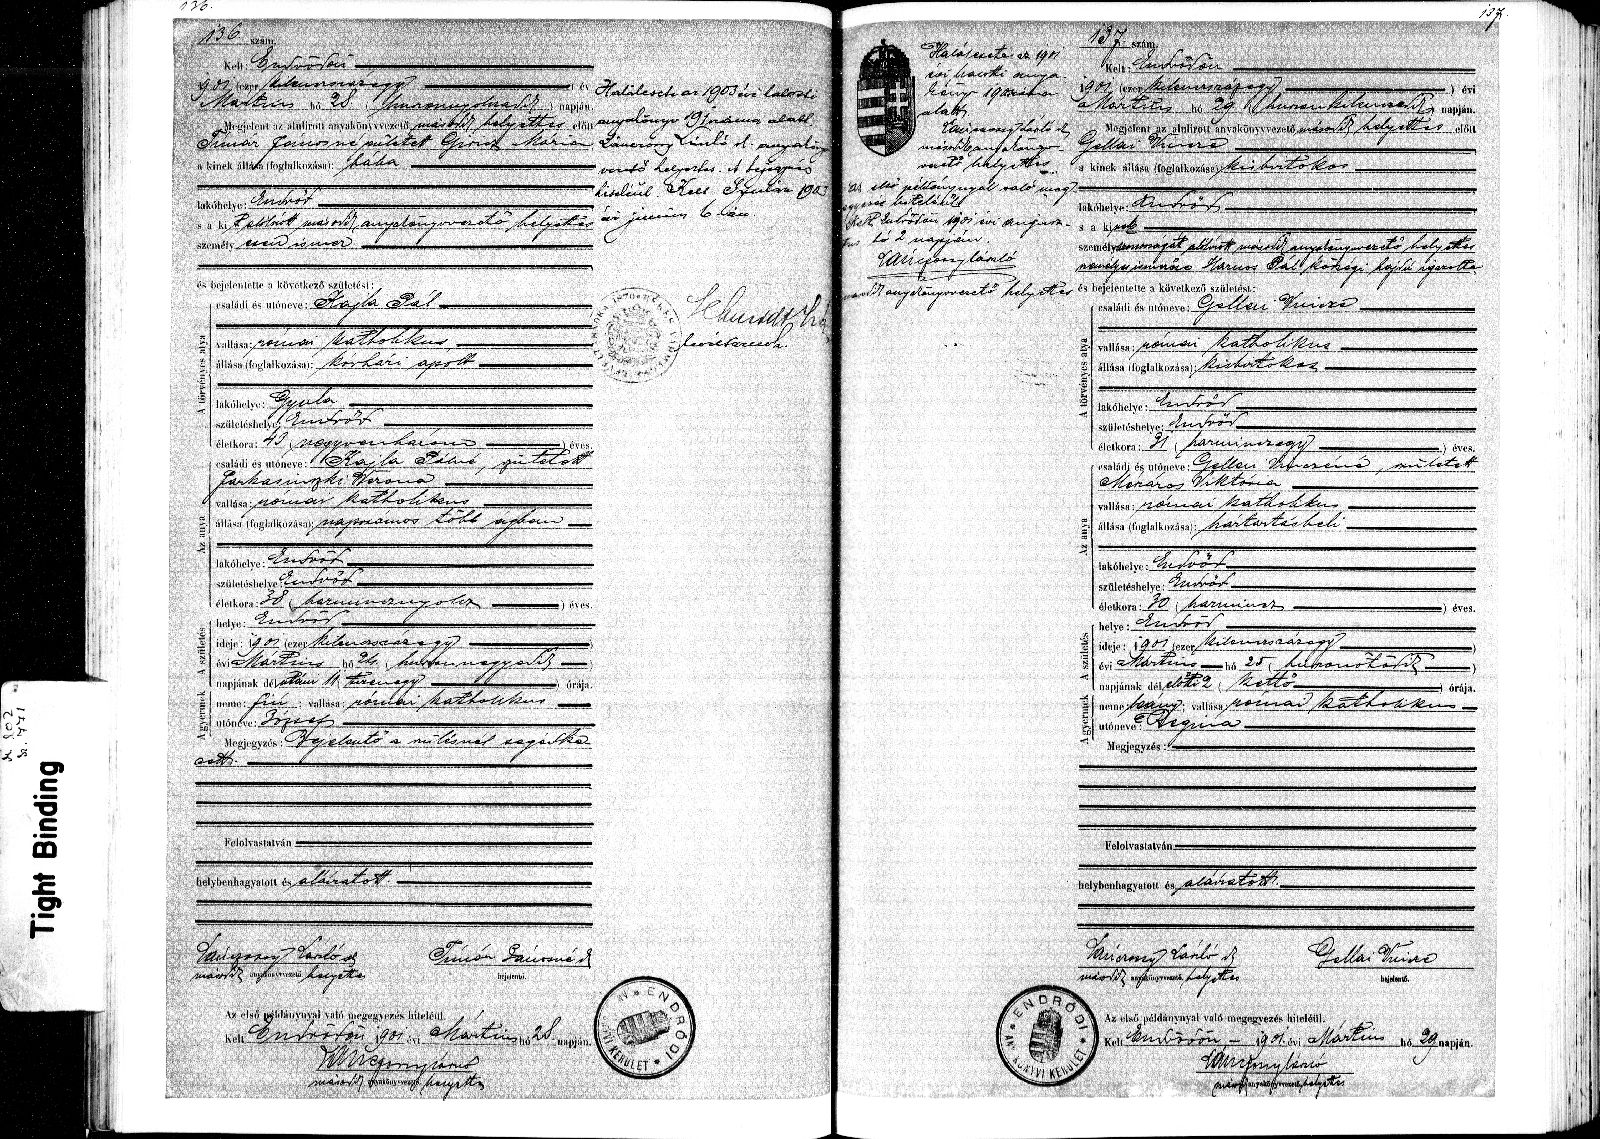 136.
136 szám.
Kelt: Endrődön
1901 (ezer kilenczszázegy) évi
Mártius hó 28. (huszonnyolczadik) napján.
Megjelent az alulirott anyakönyvvezető második helyettes előtt
Timár Jánosné született Mária
a kinek állása (foglalkozása): bába
lakóhelye: Endrőd
s a kit alólirott második anyakönyvvezető helyettes
személyesen ismer
és bejelentette a következő születést:
A törvényes atya
családi és utóneve: Hajla Pál
vallása: római katholikus
állása (foglalkozása): korházi ápolt
lakóhelye: Gyula
születéshelye: Endrőd
életkora: 43 (negyvenhárom) éves.
Az anya
családi és utóneve: Hajla Pálné, született
Verona
vallása: római katholikus
állása (foglalkozása): napszámos több ágban
lakóhelye: Endrőd
születéshelye: Endrőd
életkora: 38 (harmincznyolcz) éves.
A születés
helye: Endrőd
ideje: 1901 (ezer kilenczszázegy)
évi Mártius hó 24. (huszonnegyedik)
napjának délután 11 (tizenegy) órája.
A gyermek
neme: fiú vallása: római katholikus
utóneve: József
Megjegyzés: Bejelentő a szülésnél segédke-
zett.
Felolvastatván
helybenhagyatott és aláíratott.
Lánczony László s.k.
második anyakönyvvezető helyettes
Timár Jánosné
bejelentő.
Az első példánynyal való megegyezés hiteléül.
Kelt Endrődön, 1901. évi Mártius hó 28 napján.
második anyakönyvvezető helyettes
Halálesete az 1903 évi halotti
anyakönyv 19 száma alatt
László s.k. anyaköny-
vezető helyettes. A bejegyzés
hiteléül 1903
évi június 6-án
ENDRŐDI
KERÜLET
137.
137 szám.
Kelt: Endrődön
1901 (ezer kilenczszázegy) évi
Mártius hó 29 (huszonkilenczedik) napján.
Megjelent az alulirott anyakönyvvezető második helyettes előtt
Gellai Vincze
a kinek állása (foglalkozása): kisbirtokos
lakóhelye: Endrőd
s a kinek
személyazonosságát alólirott második anyakönyvvezető helyettes
Harmos Pál községi hajdú igazolta
és bejelentette a következő születést:
A törvényes atya
családi és utóneve: Gellai Vincze
vallása: római katholikus
állása (foglalkozása): kisbirtokos
lakóhelye: Endrőd
születéshelye: Endrőd
életkora: 31 (harminczegy) éves.
Az anya
családi és utóneve: Gellai Vinczéné, született
Mészáros Viktória
vallása: római katholikus
állása (foglalkozása): háztartásbeli
lakóhelye: Endrőd
születéshelye: Endrőd
életkora: 30 (harmincz) éves.
A születés
helye: Endrőd
ideje: 1901 (ezer kilenczszázegy)
évi Mártius hó 25 (huszonötödik)
napjának délelőtti 2 (kettő) órája.
A gyermek
neme: leány; vallása: római katholikus
utóneve: Regina
Megjegyzés:
Felolvastatván
helybenhagyatott és aláíratott.
Lánczony László s.k.
második anyakönyvvezető helyettes
Gellai Vincze
bejelentő.
Az első példánynyal való megegyezés hiteléül.
Kelt Endrődön, – 1901. évi Mártius hó 29 napján.
második anyakönyvvezető helyettes
Halálesete az 1901
évi halotti anya-
könyv
alatt
László s.k.
második anyakönyv-
vezető helyettes.
Az első példánynyal való meg-
egyezés hiteléül
Kelt Endrődön 1901 évi augusz-
tus hó 2 napján.
második anyakönyvvezető helyettes
ENDRŐDI
ANYAKÖNYVI KERÜLET
Tight Binding